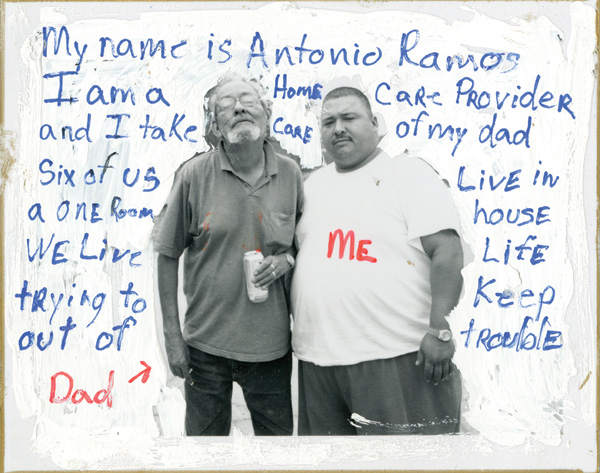 My name is Antonio Ramos
I am a Home Care Provider
and I take CARE of my dad
Six of us Live in
a ONE Room house
WE Live Life
trying to Keep
out of trouble
ME
Dad